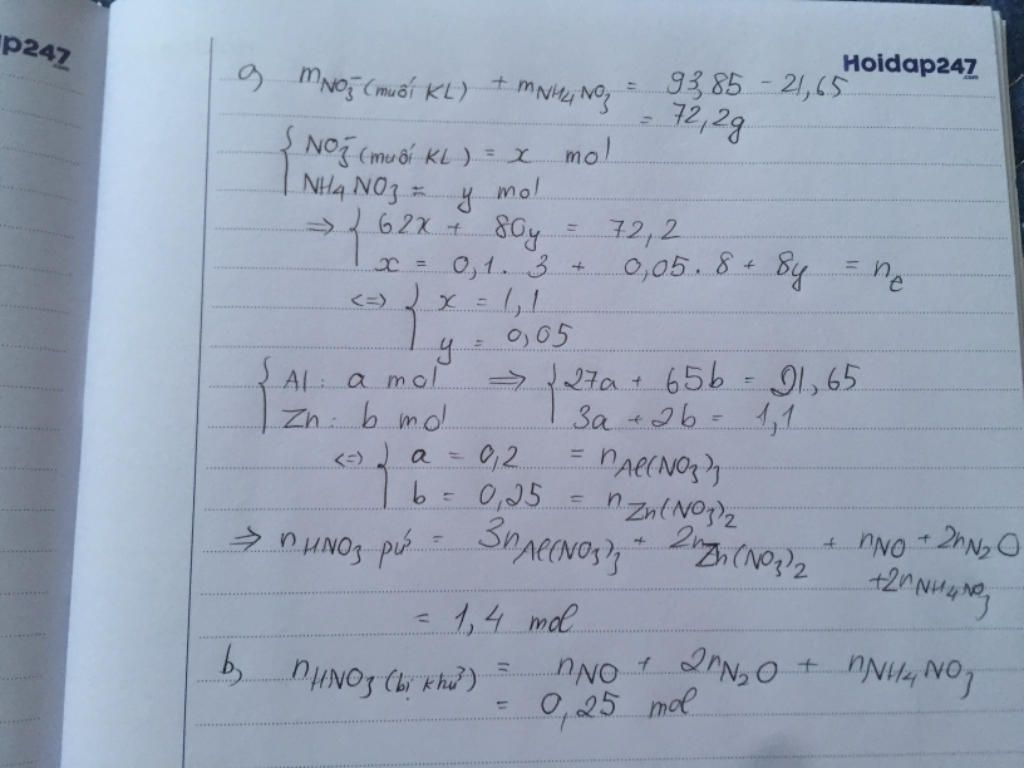 ap247
.com
Hoidap247
.com
a) mNO3- (muối KL) + mNH4NO3 = 93,85 - 21,65
= 72,2g
{ NO3- (muối KL) = x mol
NH4NO3 = y mol
=> { 62x + 80y = 72,2
x = 0,1 . 3 + 0,05 . 8 + 8y = ne
<=> { x = 1,1
y = 0,05
{ Al : a mol => { 27a + 65b = 21,65
Zn : b mol 3a + 2b = 1,1
<=> { a = 0,2 = nAl(NO3)3
b = 0,25 = nZn(NO3)2
=> nHNO3 pứ = 3nAl(NO3)3 + 2nZn(NO3)2 + nNO + 2nN2O
+2nNH4NO3
= 1,4 mol
b) nHNO3 (bị khử) = nNO + 2nN2O + nNH4NO3
= 0,25 mol